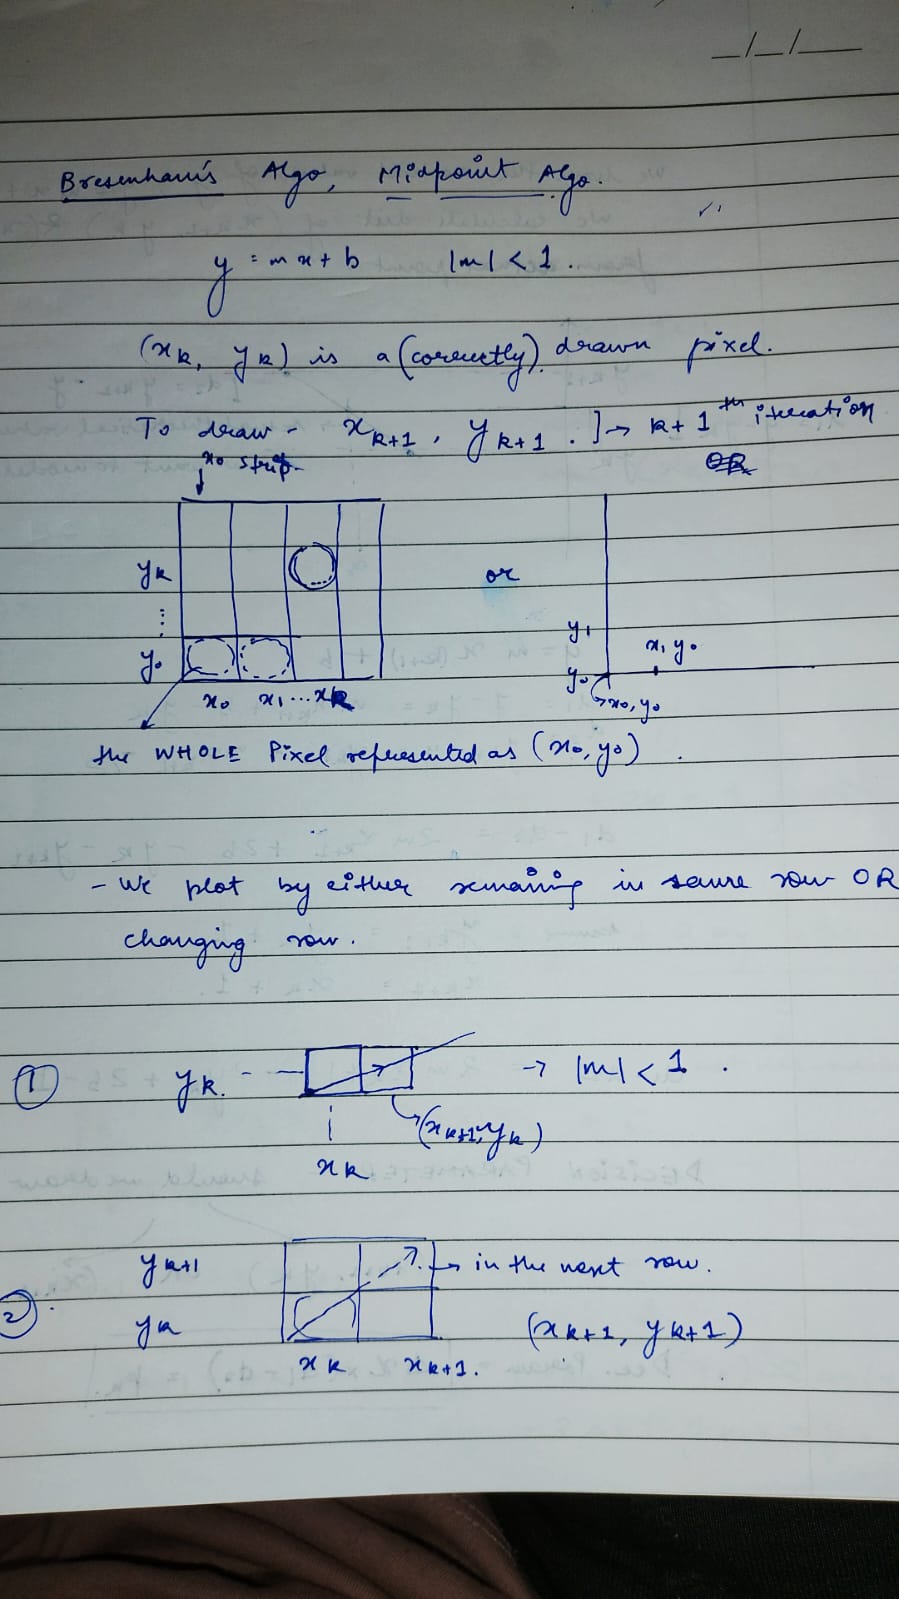 _/_/__
Bresenham's Algo, Midpoint Algo.
y = mx + b |m| < 1.
(xk, yk) is a (correctly) drawn pixel.
To draw - xk+1, yk+1. ] → k+1th iteration
x0 strip. OR
yk or
⋮ y1 x1 y0
y0 y0
x0 x1 ... xk x0, y0
the WHOLE Pixel represented as (x0, y0).
- We plot by either remaining in same row OR
changing row.
① yk. → |m| < 1.
(xk+1, yk)
xk
yk+1 → in the next row.
② yk (xk+1, yk+1)
xk xk+1.